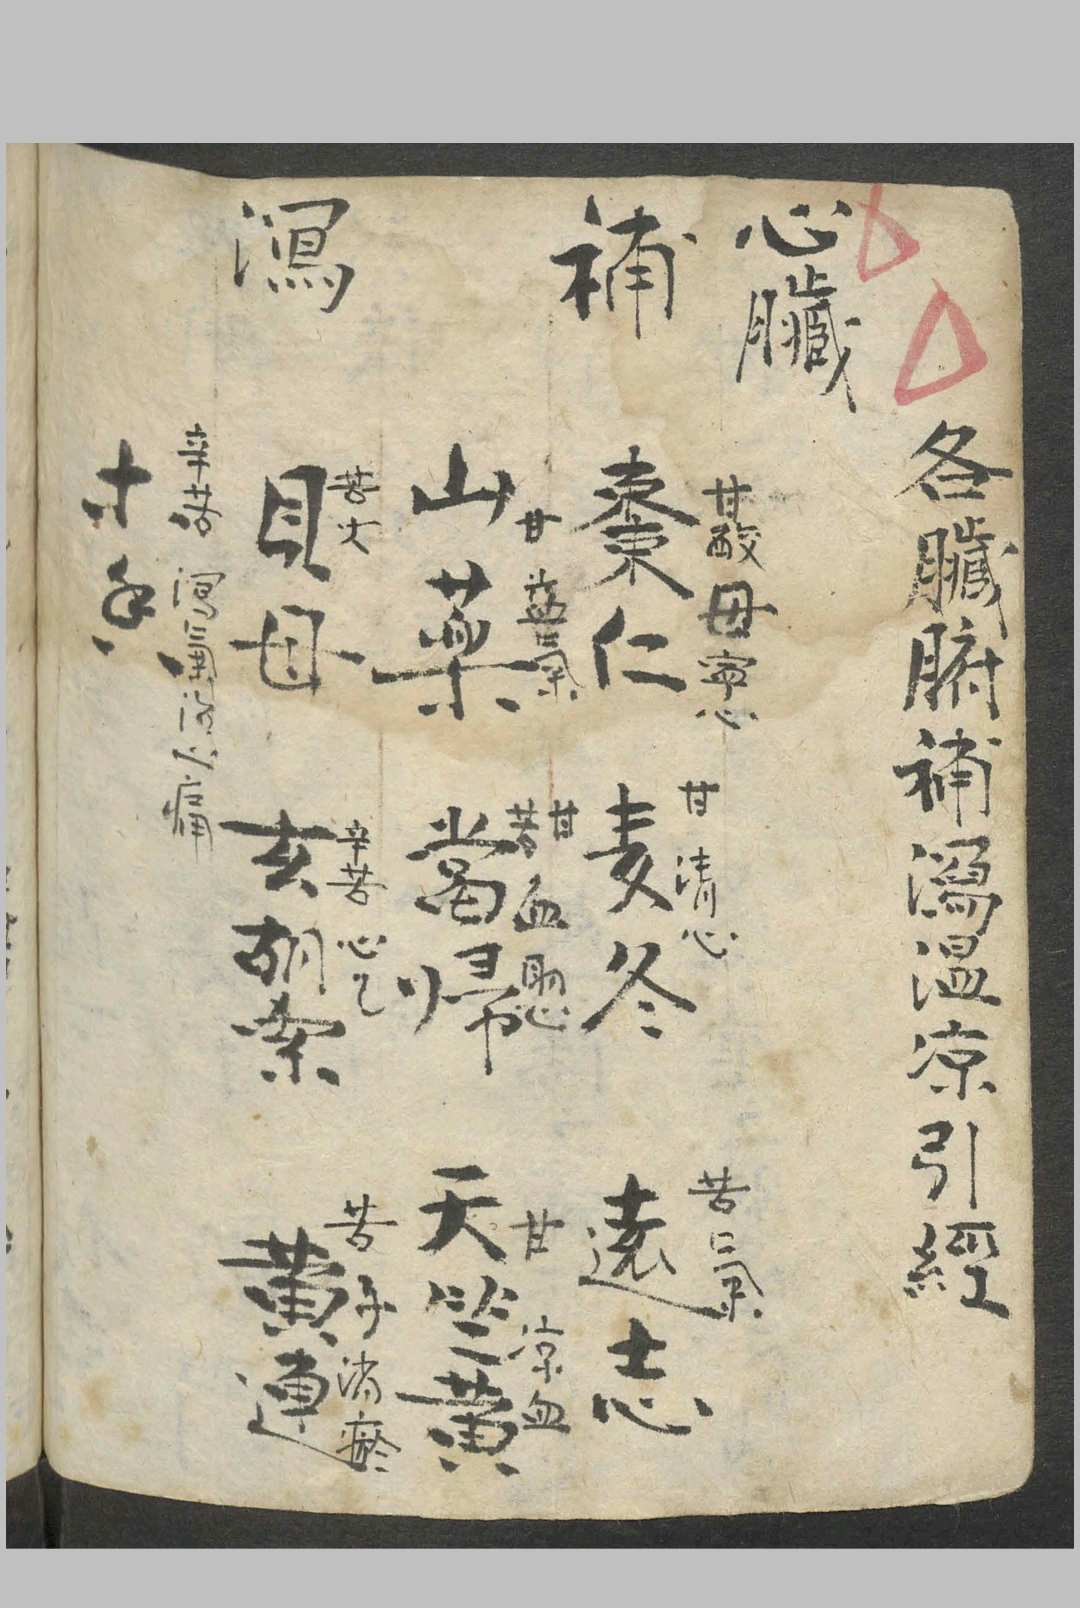 各臟腑補瀉温凉引經
心臟
補
甘酸 寧心
棗仁
甘 清心
麦冬
苦 氣
遠志
甘 益氣
山藥
甘苦 血 聰心
當歸
甘 凉血
天竺黄
瀉
苦 火
貝母
辛苦 心
玄胡索
苦 消瘀
黄連
辛苦 瀉 痛
木香